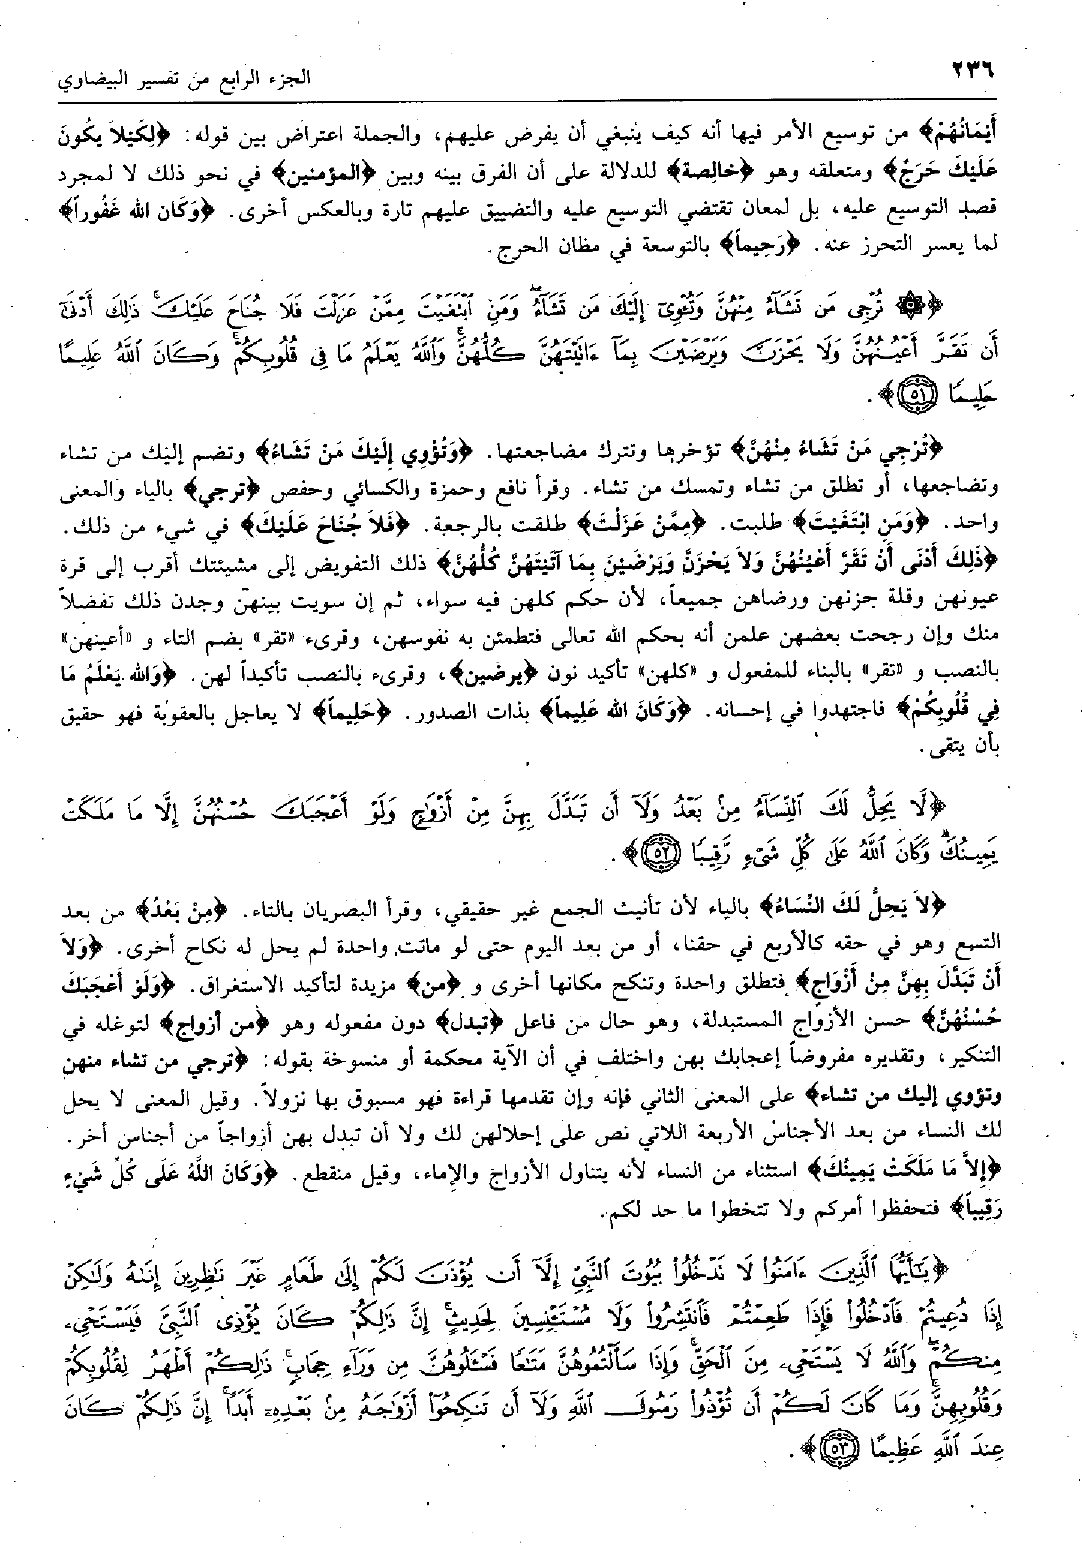 ٢٣٦
الجزء الرابع من تفسير البيضاوي
أَيْمَانُهُمْ﴾ من توسيع الأمر فيها أنه كيف ينبغي أن يفرض عليهم، والجملة اعتراض بين قوله: ﴿لِكَيْلاَ يَكُونَ
عَلَيْكَ حَرَجٌ﴾ ومتعلقه وهو ﴿خالِصة﴾ للدلالة على أن الفرق بينه وبين ﴿المؤمنين﴾ في نحو ذلك لا لمجرد
قصد التوسيع عليه، بل لمعان تقتضي التوسيع عليه والتضييق عليهم تارة وبالعكس أخرى. ﴿وَكَان الله غَفُوراً﴾
لما يعسر التحرز عنه. ﴿رَحِيماً﴾ بالتوسعة في مظان الحرج.
﴿۞ تُرْجِى مَن تَشَآءُ مِنْهُنَّ وَتُـْٔوِىٓ إِلَيْكَ مَن تَشَآءُ ۖ وَمَنِ ٱبْتَغَيْتَ مِمَّنْ عَزَلْتَ فَلَا جُنَاحَ عَلَيْكَ ۚ ذَٰلِكَ أَدْنَىٰٓ
أَن تَقَرَّ أَعْيُنُهُنَّ وَلَا يَحْزَنَّ وَيَرْضَيْنَ بِمَآ ءَاتَيْتَهُنَّ كُلُّهُنَّ ۚ وَٱللَّهُ يَعْلَمُ مَا فِى قُلُوبِكُمْ ۚ وَكَانَ ٱللَّهُ عَلِيمًا
حَلِيمًا ﴿٥١﴾﴾.
﴿تُرْجِي مَنْ تَشَاءُ مِنْهُنَّ﴾ تؤخرها وتترك مضاجعتها. ﴿وَتُؤْوِي إِلَيْكَ مَنْ تَشَاءُ﴾ وتضم إليك من تشاء
وتضاجعها، أو تطلق من تشاء وتمسك من تشاء. وقرأ نافع وحمزة والكسائي وحفص ﴿ترجي﴾ بالياء والمعنى
واحد. ﴿وَمَنِ ابْتَغَيْتَ﴾ طلبت. ﴿مِمَّنْ عَزَلْتَ﴾ طلقت بالرجعة. ﴿فَلاَ جُنَاحَ عَلَيْكَ﴾ في شيء من ذلك.
﴿ذَلِكَ أَدْنَى أَنْ تَقَرَّ أَعْيُنُهُنَّ وَلاَ يَحْزَنَّ وَيَرْضَيْنَ بِمَا آتَيْتَهُنَّ كُلُّهُنَّ﴾ ذلك التفويض إلى مشيئتك أقرب إلى قرة
عيونهن وقلة حزنهن ورضاهن جميعاً، لأن حكم كلهن فيه سواء، ثم إن سويت بينهنّ وجدن ذلك تفضلاً
منك وإن رجحت بعضهن علمن أنه بحكم الله تعالى فتطمئن به نفوسهن، وقرىء «تقر» بضم التاء و «أعينهن»
بالنصب و «تقر» بالبناء للمفعول و «كلهن» تأكيد نون ﴿يرضين﴾، وقرىء بالنصب تأكيداً لهن. ﴿وَالله يَعْلَمُ مَا
فِي قُلُوبِكُمْ﴾ فاجتهدوا في إحسانه. ﴿وَكَانَ الله عَلِيماً﴾ بذات الصدور. ﴿حَلِيماً﴾ لا يعاجل بالعقوبة فهو حقيق
بأن يتقى.
﴿لَّا يَحِلُّ لَكَ ٱلنِّسَآءُ مِنۢ بَعْدُ وَلَآ أَن تَبَدَّلَ بِهِنَّ مِنْ أَزْوَٰجٍ وَلَوْ أَعْجَبَكَ حُسْنُهُنَّ إِلَّا مَا مَلَكَتْ
يَمِينُكَ ۗ وَكَانَ ٱللَّهُ عَلَىٰ كُلِّ شَىْءٍ رَّقِيبًا ﴿٥٢﴾﴾.
﴿لاَ يَحِلُّ لَكَ النِّسَاءُ﴾ بالياء لأن تأنيث الجمع غير حقيقي، وقرأ البصريان بالتاء. ﴿مِنْ بَعْدُ﴾ من بعد
التسع وهو في حقه كالأربع في حقنا، أو من بعد اليوم حتى لو ماتت واحدة لم يحل له نكاح أخرى. ﴿وَلاَ
أَنْ تَبَدَّلَ بِهِنَّ مِنْ أَزْوَاجٍ﴾ فتطلق واحدة وتنكح مكانها أخرى و ﴿من﴾ مزيدة لتأكيد الاستغراق. ﴿وَلَوْ أَعْجَبَكَ
حُسْنُهُنَّ﴾ حسن الأزواج المستبدلة، وهو حال من فاعل ﴿تبدل﴾ دون مفعوله وهو ﴿من أزواج﴾ لتوغله في
التنكير، وتقديره مفروضاً إعجابك بهن واختلف في أن الآية محكمة أو منسوخة بقوله: ﴿ترجي من تشاء منهن
وتؤوي إليك من تشاء﴾ على المعنى الثاني فإنه وإن تقدمها قراءة فهو مسبوق بها نزولاً. وقيل المعنى لا يحل
لك النساء من بعد الأجناس الأربعة اللاتي نص على إحلالهن لك ولا أن تبدل بهن أزواجاً من أجناس أخر.
﴿إِلاَّ مَا مَلَكَتْ يَمِينُكَ﴾ استثناء من النساء لأنه يتناول الأزواج والإماء، وقيل منقطع. ﴿وَكَانَ اللَّهُ عَلَى كُلِّ شَيْءٍ
رَقِيباً﴾ فتحفظوا أمركم ولا تتخطوا ما حد لكم.
﴿يَٰٓأَيُّهَا ٱلَّذِينَ ءَامَنُوا۟ لَا تَدْخُلُوا۟ بُيُوتَ ٱلنَّبِىِّ إِلَّآ أَن يُؤْذَنَ لَكُمْ إِلَىٰ طَعَامٍ غَيْرَ نَٰظِرِينَ إِنَىٰهُ وَلَٰكِنْ
إِذَا دُعِيتُمْ فَٱدْخُلُوا۟ فَإِذَا طَعِمْتُمْ فَٱنتَشِرُوا۟ وَلَا مُسْتَـْٔنِسِينَ لِحَدِيثٍ ۚ إِنَّ ذَٰلِكُمْ كَانَ يُؤْذِى ٱلنَّبِىَّ فَيَسْتَحْىِۦ
مِنكُمْ ۖ وَٱللَّهُ لَا يَسْتَحْىِۦ مِنَ ٱلْحَقِّ ۚ وَإِذَا سَأَلْتُمُوهُنَّ مَتَٰعًا فَسْـَٔلُوهُنَّ مِن وَرَآءِ حِجَابٍ ۚ ذَٰلِكُمْ أَطْهَرُ لِقُلُوبِكُمْ
وَقُلُوبِهِنَّ ۚ وَمَا كَانَ لَكُمْ أَن تُؤْذُوا۟ رَسُولَ ٱللَّهِ وَلَآ أَن تَنكِحُوٓا۟ أَزْوَٰجَهُۥ مِنۢ بَعْدِهِۦٓ أَبَدًا ۚ إِنَّ ذَٰلِكُمْ كَانَ
عِندَ ٱللَّهِ عَظِيمًا ﴿٥٣﴾﴾.